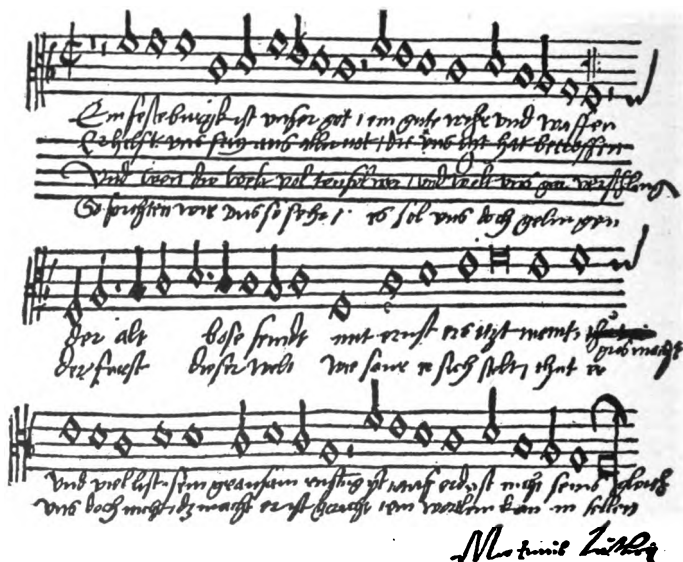 Ein feste burgk ist unser got / ein gute wehr und waffen
Er hilfft uns frey aus aller not / die uns itzt hat betroffen
Und wen die welt vol teufel wer / und wolt uns gar verschling
So furchten wir uns so sehr / es sol uns doch gelingen
der alt bose feindt mit ernst ers itzt meint / gros macht
der furst dieser welt wie saur er sich stelt / thut er
und viel list sein grausam rustung ist / auf erd ist nicht seins gleich
uns doch nicht / dz macht er ist gericht / ein wortlein kan in fellen
Martinus Luther